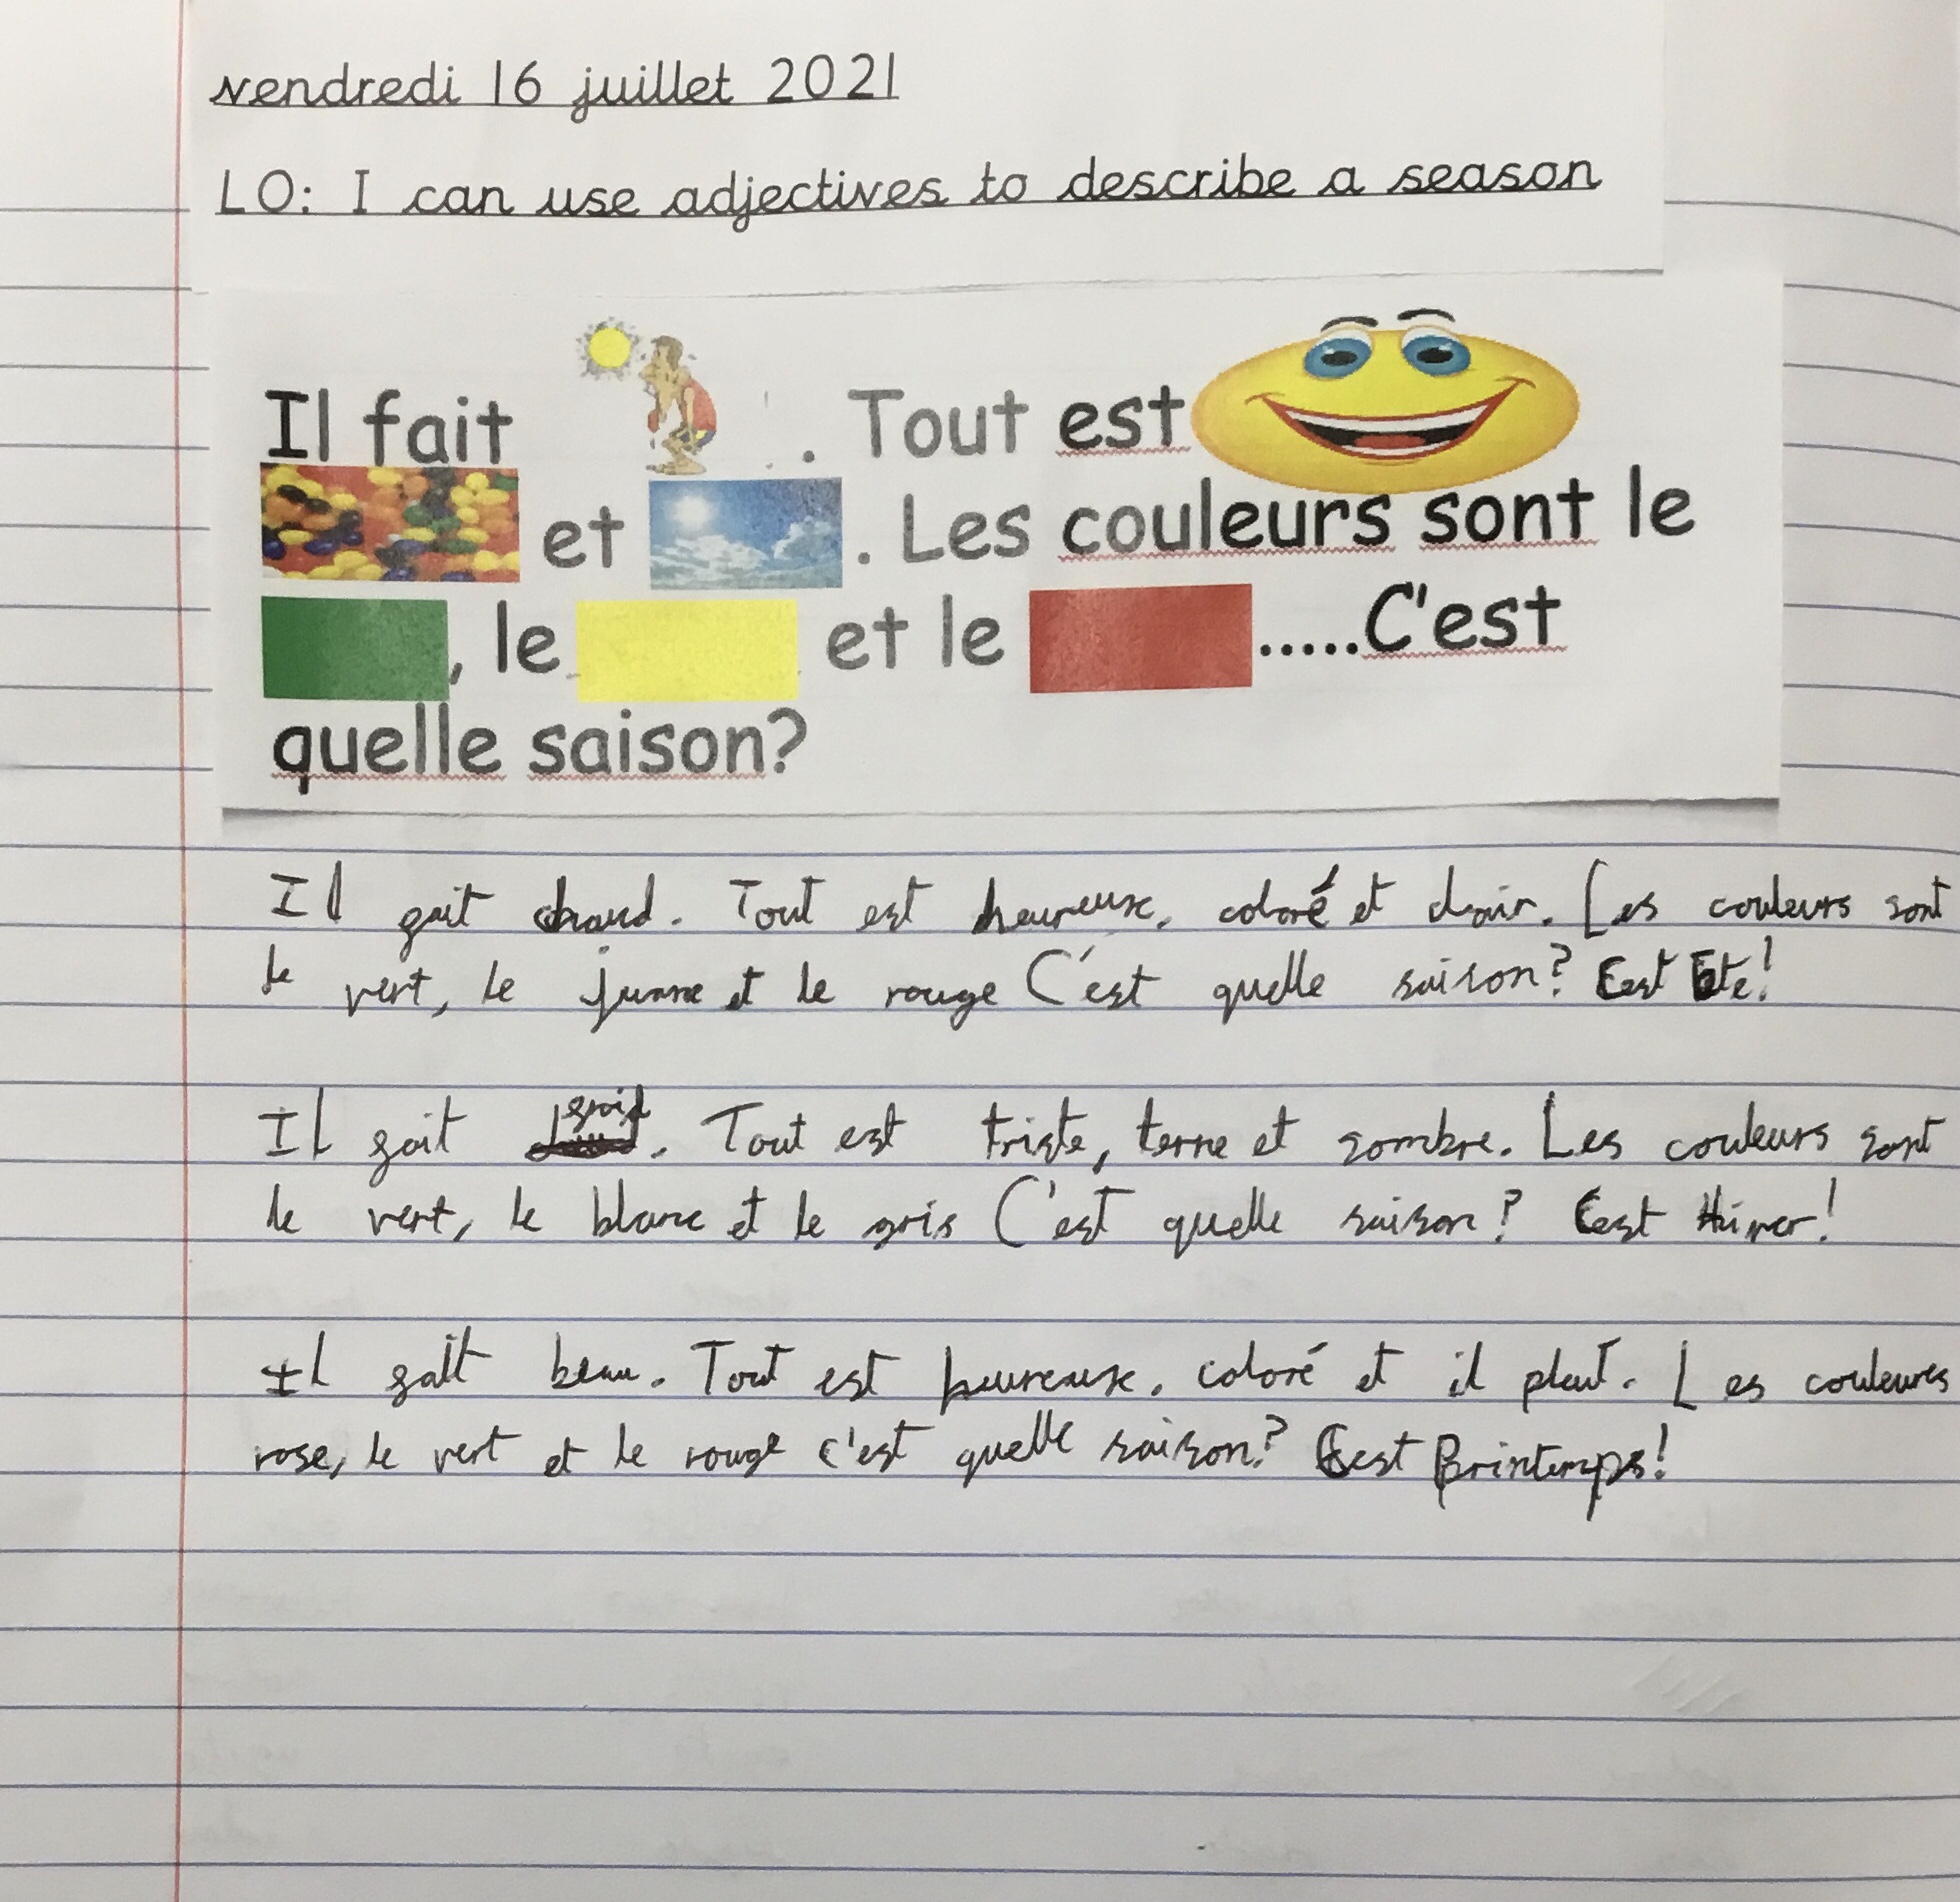 vendredi 16 juillet 2021
LO: I can use adjectives to describe a season
Il fait . Tout est
et . Les couleurs sont le
, le et le .....C'est
quelle saison?
Il fait chaud. Tout est heureuse, coloré et clair. Les couleurs sont
le vert, le juane et le rouge C'est quelle saison? C'est Ete!
Il fait froid. Tout est triste, terne et sombre. Les couleurs sont
le vert, le blanc et le gris C'est quelle saison? C'est Hiver!
Il fait beau. Tout est heureuse, coloré et il pleut. Les couleures
rose, le vert et le rouge c'est quelle saison? C'est Printemps!